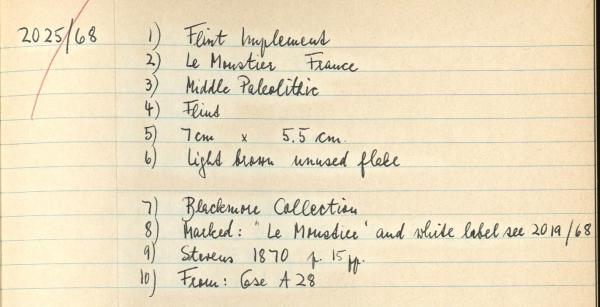 2025/68 1) Flint Implement
2) Le Moustier France
3) Middle Paleolithic
4) Flint
5) 7cm x 5.5 cm.
6) Light brown unused flake
7) Blackmore Collection
8) Marked: "Le Moustier" and white label see 2019/68
9) Stevens 1870 p. 15 pp.
10) From: Case A 28